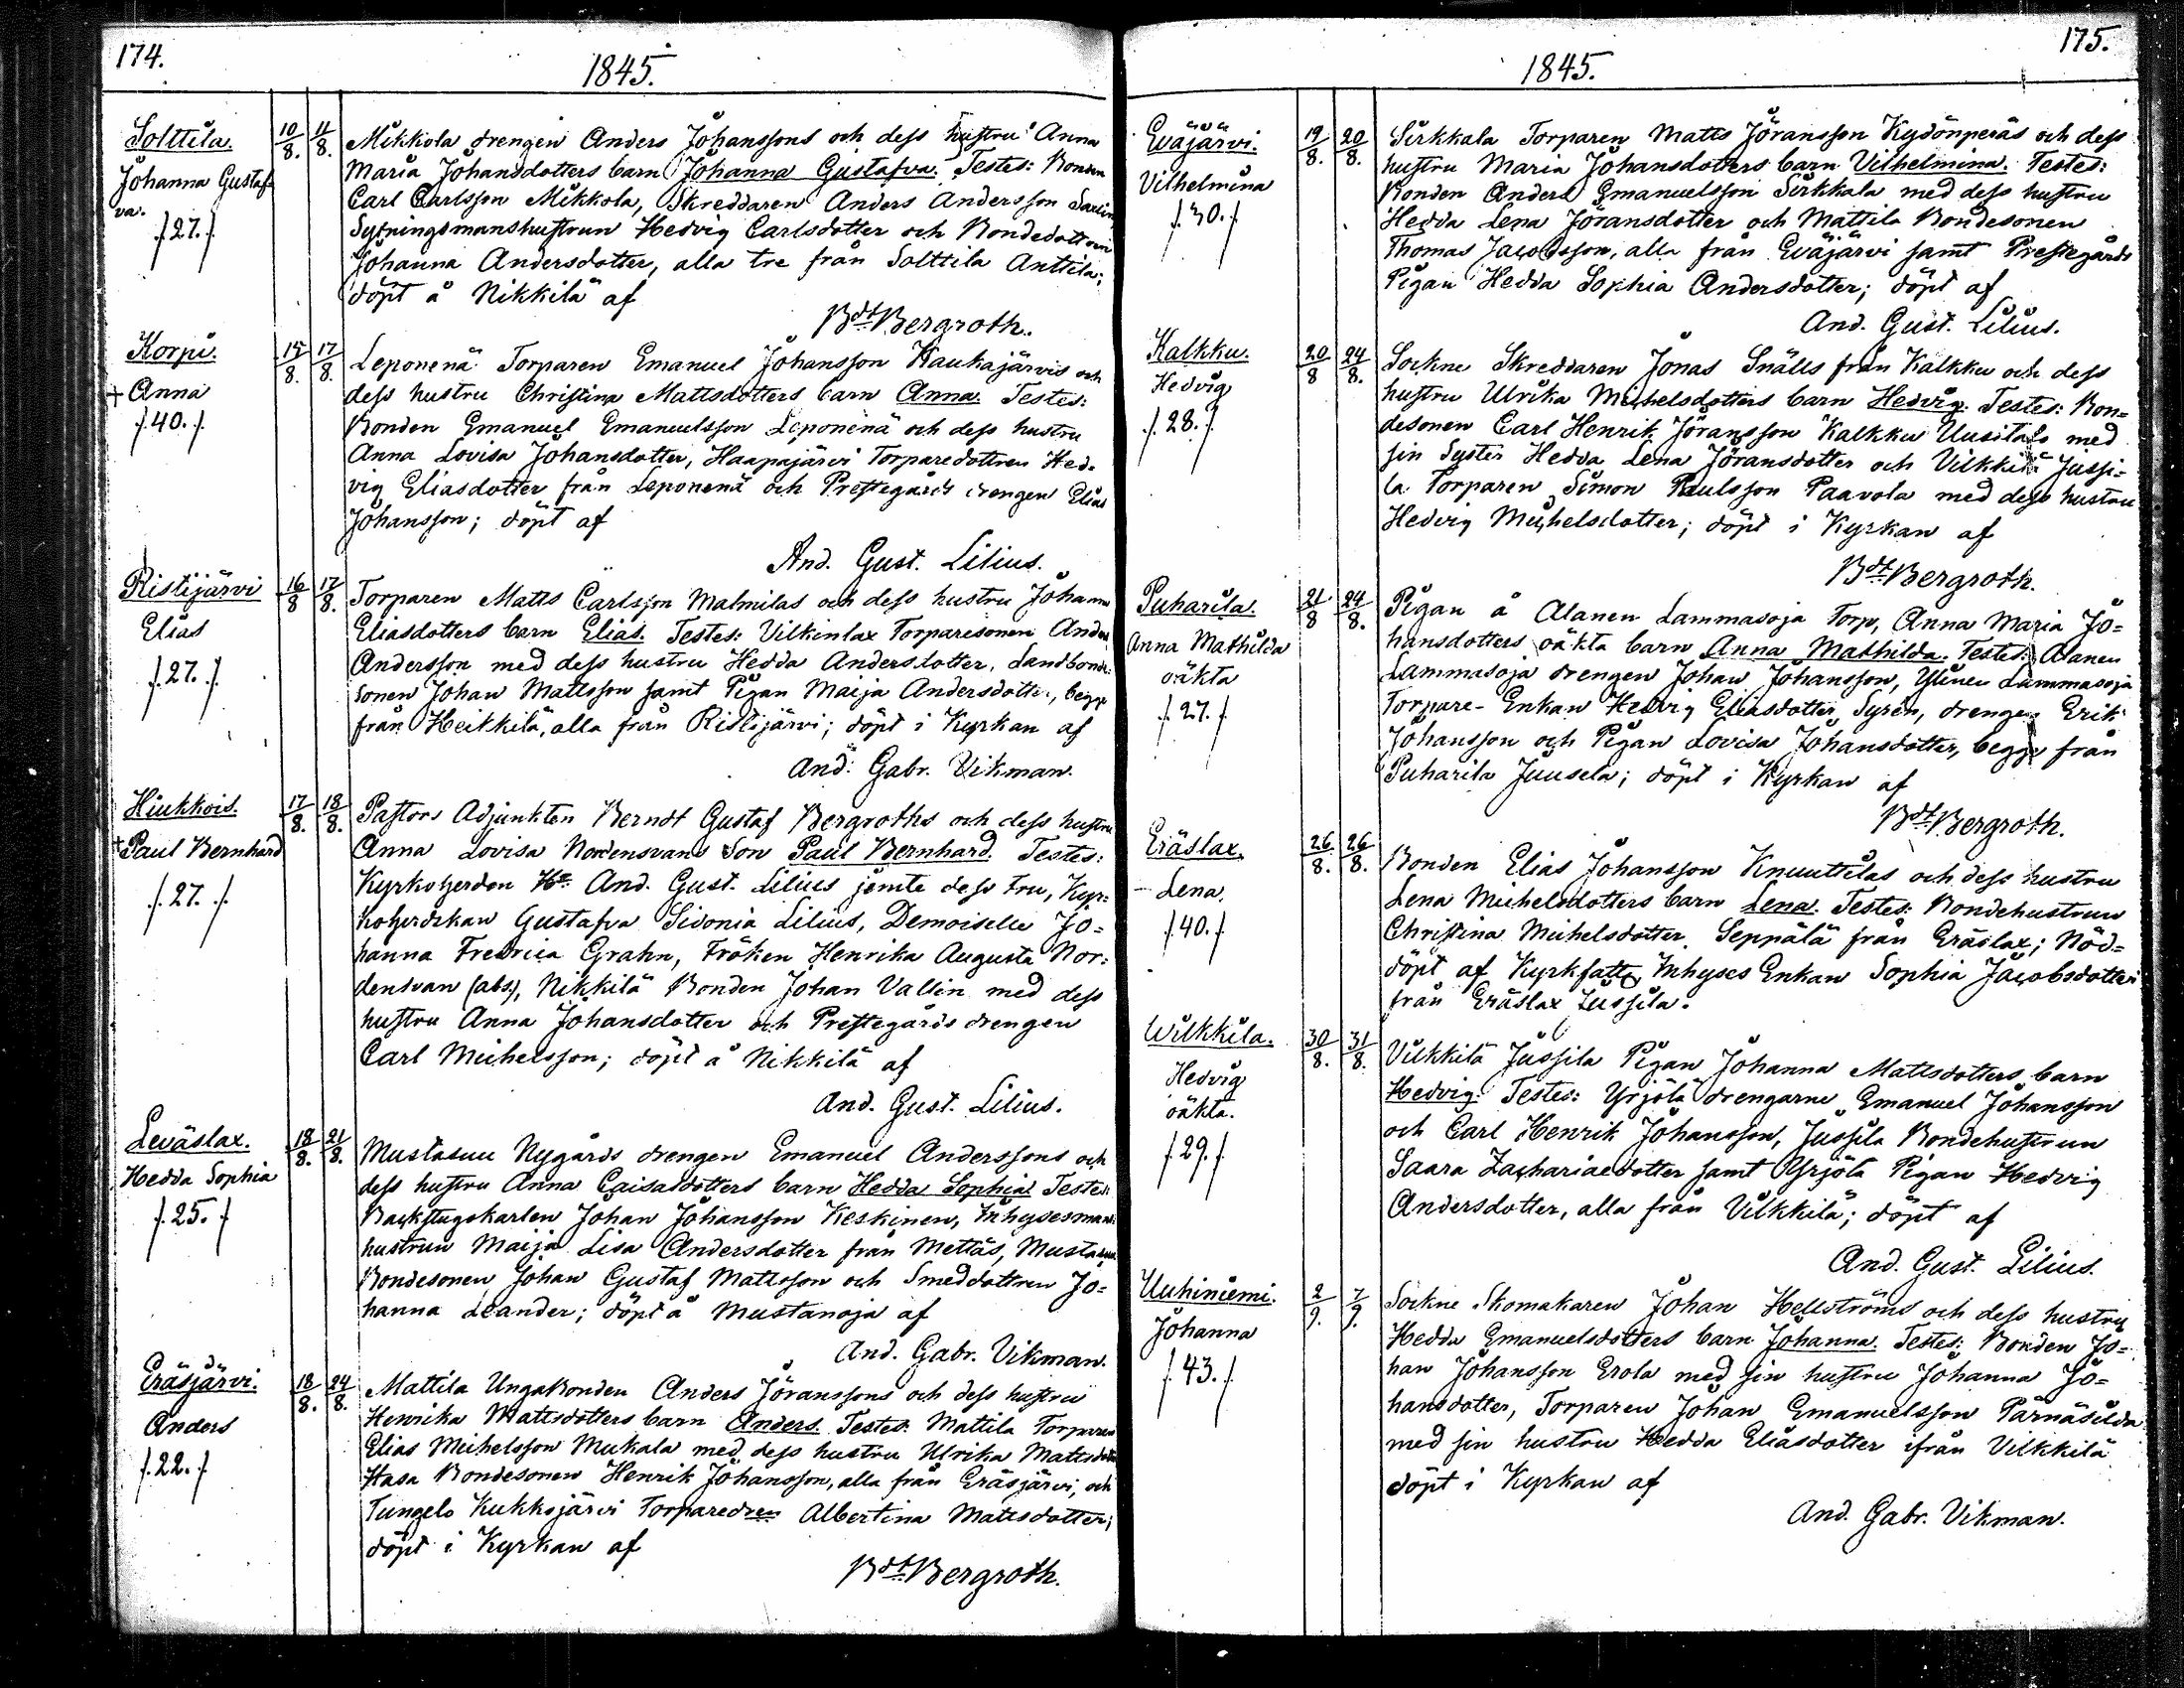 174.
1845.
Solttila.
Johanna Gustaf-
va.
/.27./
10/8. 11/8.
Mikkola drengen Anders Johanssons och dess hustru Anna
Maria Johansdotters barn Johanna Gustafva. Testes: Bonden
Carl Carlsson Mikkola, Skreddaren Anders Andersson
Sytningsmanshustrun Hedvig Carlsdotter och Bondedottren
Johanna Andersdotter, alla tre från Solttila Anttila;
döpt å Nikkilä af
Bdt Bergroth.
Korpi.
+ Anna
/.40./
15/8. 17/8.
Leponenä Torparen Emanuel Johansson Haukajärvis och
dess hustru Christina Mattsdotters barn Anna. Testes:
Bonden Emanuel Emanuelsson Leponenä och dess hustru
Anna Lovisa Johansdotter, Haapajärvi Torparedottren Hed-
vig Eliasdotter från Leponenä och Prestegårds drengen Elias
Johansson; döpt af
And. Gust. Lilius.
Ristijärvi
Elias
/.27./
16/8 17/8.
Torparen Matts Carlsson Malmilas och dess hustru Johanna
Eliasdotters barn Elias. Testes: Vilkinlax Torparesonen Anders
Andersson med dess hustru Hedda Andersdotter, Landbonde-
sonen Johan Mattsson samt Pigan Maija Andersdotter, begge
från Heikkilä, alla från Ristijärvi; döpt i Kyrkan af
And. Gabr. Vikman.
Hiukkois.
+ Paul Bernhard
/.27./
17/8. 18/8.
Pastors Adjunkten Berndt Gustaf Bergroths och dess hustru
Anna Lovisa Nordensvans Son Paul Bernhard. Testes:
Kyrkoherden Hr And. Gust. Lilius jemte dess Fru, Kyr-
koherdskan Gustafva Sidonia Lilius, Demoiselle Jo-
hanna Fredrica Grahn, Fröken Henrika Augusta Nor-
densvan (abs.), Nikkilä Bonden Johan Vallin med dess
hustru Anna Johansdotter och Prestegårds drengen
Carl Michelsson; döpt å Nikkilä af
And. Gust. Lilius.
Leväslax.
Hedda Sophia
/.25./
18/8. 21/8.
Mustasuu Nygårds drengen Emanuel Anderssons och
dess hustru Anna Caisasdotters barn Hedda Sophia. Testes:
Backstugokarlen Johan Johansson Keskinen, Inhysesmans
hustrun Maija Lisa Andersdotter från Mettäs, Mustasuu
Bondesonen Johan Gustaf Mattsson och Smeddottren Jo-
hanna Leander; döpt å Mustanoja af
And. Gabr. Vikman.
Eräsjärvi.
Anders
/.22./
18/8. 24/8.
Mattila Unga Bonden Anders Jöranssons och dess hustru
Henrika Mattsdotters barn Anders. Testes: Mattila Torparen
Elias Michelsson Mukala med dess hustru Ulrika Mattsdotter
Hasa Bondesonen Henrik Johansson, alla från Eräsjärvi, och
Tungelo Kukkojärvi Torparedren Albertina Mattsdotter;
döpt i Kyrkan af
Bdt Bergroth.
175.
1845.
Eväjärvi.
Vilhelmina
/.30./
19/8. 20/8.
Sirkkala Torparen Matts Jöransson Kydönperäs och dess
hustru Maria Johansdotters barn Vilhelmina. Testes:
Bonden Anders Emanuelsson Sirkkala med dess hustru
Hedda Lena Jöransdotter och Mattila Bondesonen
Thomas Jacobsson, alla från Eväjärvi samt Prestegårds
Pigan Hedda Sophia Andersdotter; döpt af
And. Gust. Lilius.
Kalkku.
Hedvig
/.28./
20/8 24/8.
Sockne Skreddaren Jonas Snälls från Kalkku och dess
hustru Ulrika Michelsdotters barn Hedvig. Testes: Bon-
desonen Carl Henrik Jöransson Kalkku Uusitalo med
sin Syster Hedda Lena Jöransdotter och Vilkkilä Jussi-
la Torparen Simon Paulsson Paavola med dess hustru
Hedvig Michelsdotter; döpt i Kyrkan af
Bdt Bergroth.
Puharila.
Anna Mathilda
oäkta
/.27./
21/8 24/8.
Pigan å Alanen Lammasoja Torp, Anna Maria Jo-
hansdotters oäkta barn Anna Mathilda. Testes: Alanen
Lammasoja drengen Johan Johansson, Ylinen Lammasoja
Torpare-Enkan Hedvig Eliasdotter Syrén, drengen Erik
Johansson och Pigan Lovisa Johansdotter, begge från
Puharila Juusela; döpt i Kyrkan af
Bdt Bergroth.
Eräslax.
Lena.
/.40./
26/8. 26/8.
Bonden Elias Johansson Knuuttilas och dess hustru
Lena Michelsdotters barn Lena. Testes: Bondehustrun
Christina Michelsdotter Seppälä från Eräslax; Nöd-
döpt af Kyrkfatt. Inhyses Enkan Sophia Jacobsdotter
från Eräslax Jussila.
Wilkkila.
Hedvig
oäkta.
/.29./
30/8. 31/8.
Vilkkilä Jussila Pigan Johanna Mattsdotters barn
Hedvig. Testes: Yrjölä drengarne Emanuel Johansson
och Carl Henrik Johansson, Jussila Bondehustrun
Saara Zachariaedotter samt Yrjölä Pigan Hedvig
Andersdotter, alla från Vilkkilä; döpt af
And. Gust. Lilius.
Uuhiniemi.
Johanna
/.43./
2/9. 7/9.
Sockne Skomakaren Johan Hellströms och dess hustru
Hedda Emanuelsdotters barn Johanna. Testes: Bonden Jo-
han Johansson Erola med sin hustru Johanna Jo-
hansdotter, Torparen Johan Emanuelsson Pärnäsilda
med sin hustru Hedda Eliasdotter från Vilkkilä
döpt i Kyrkan af
And. Gabr. Vikman.